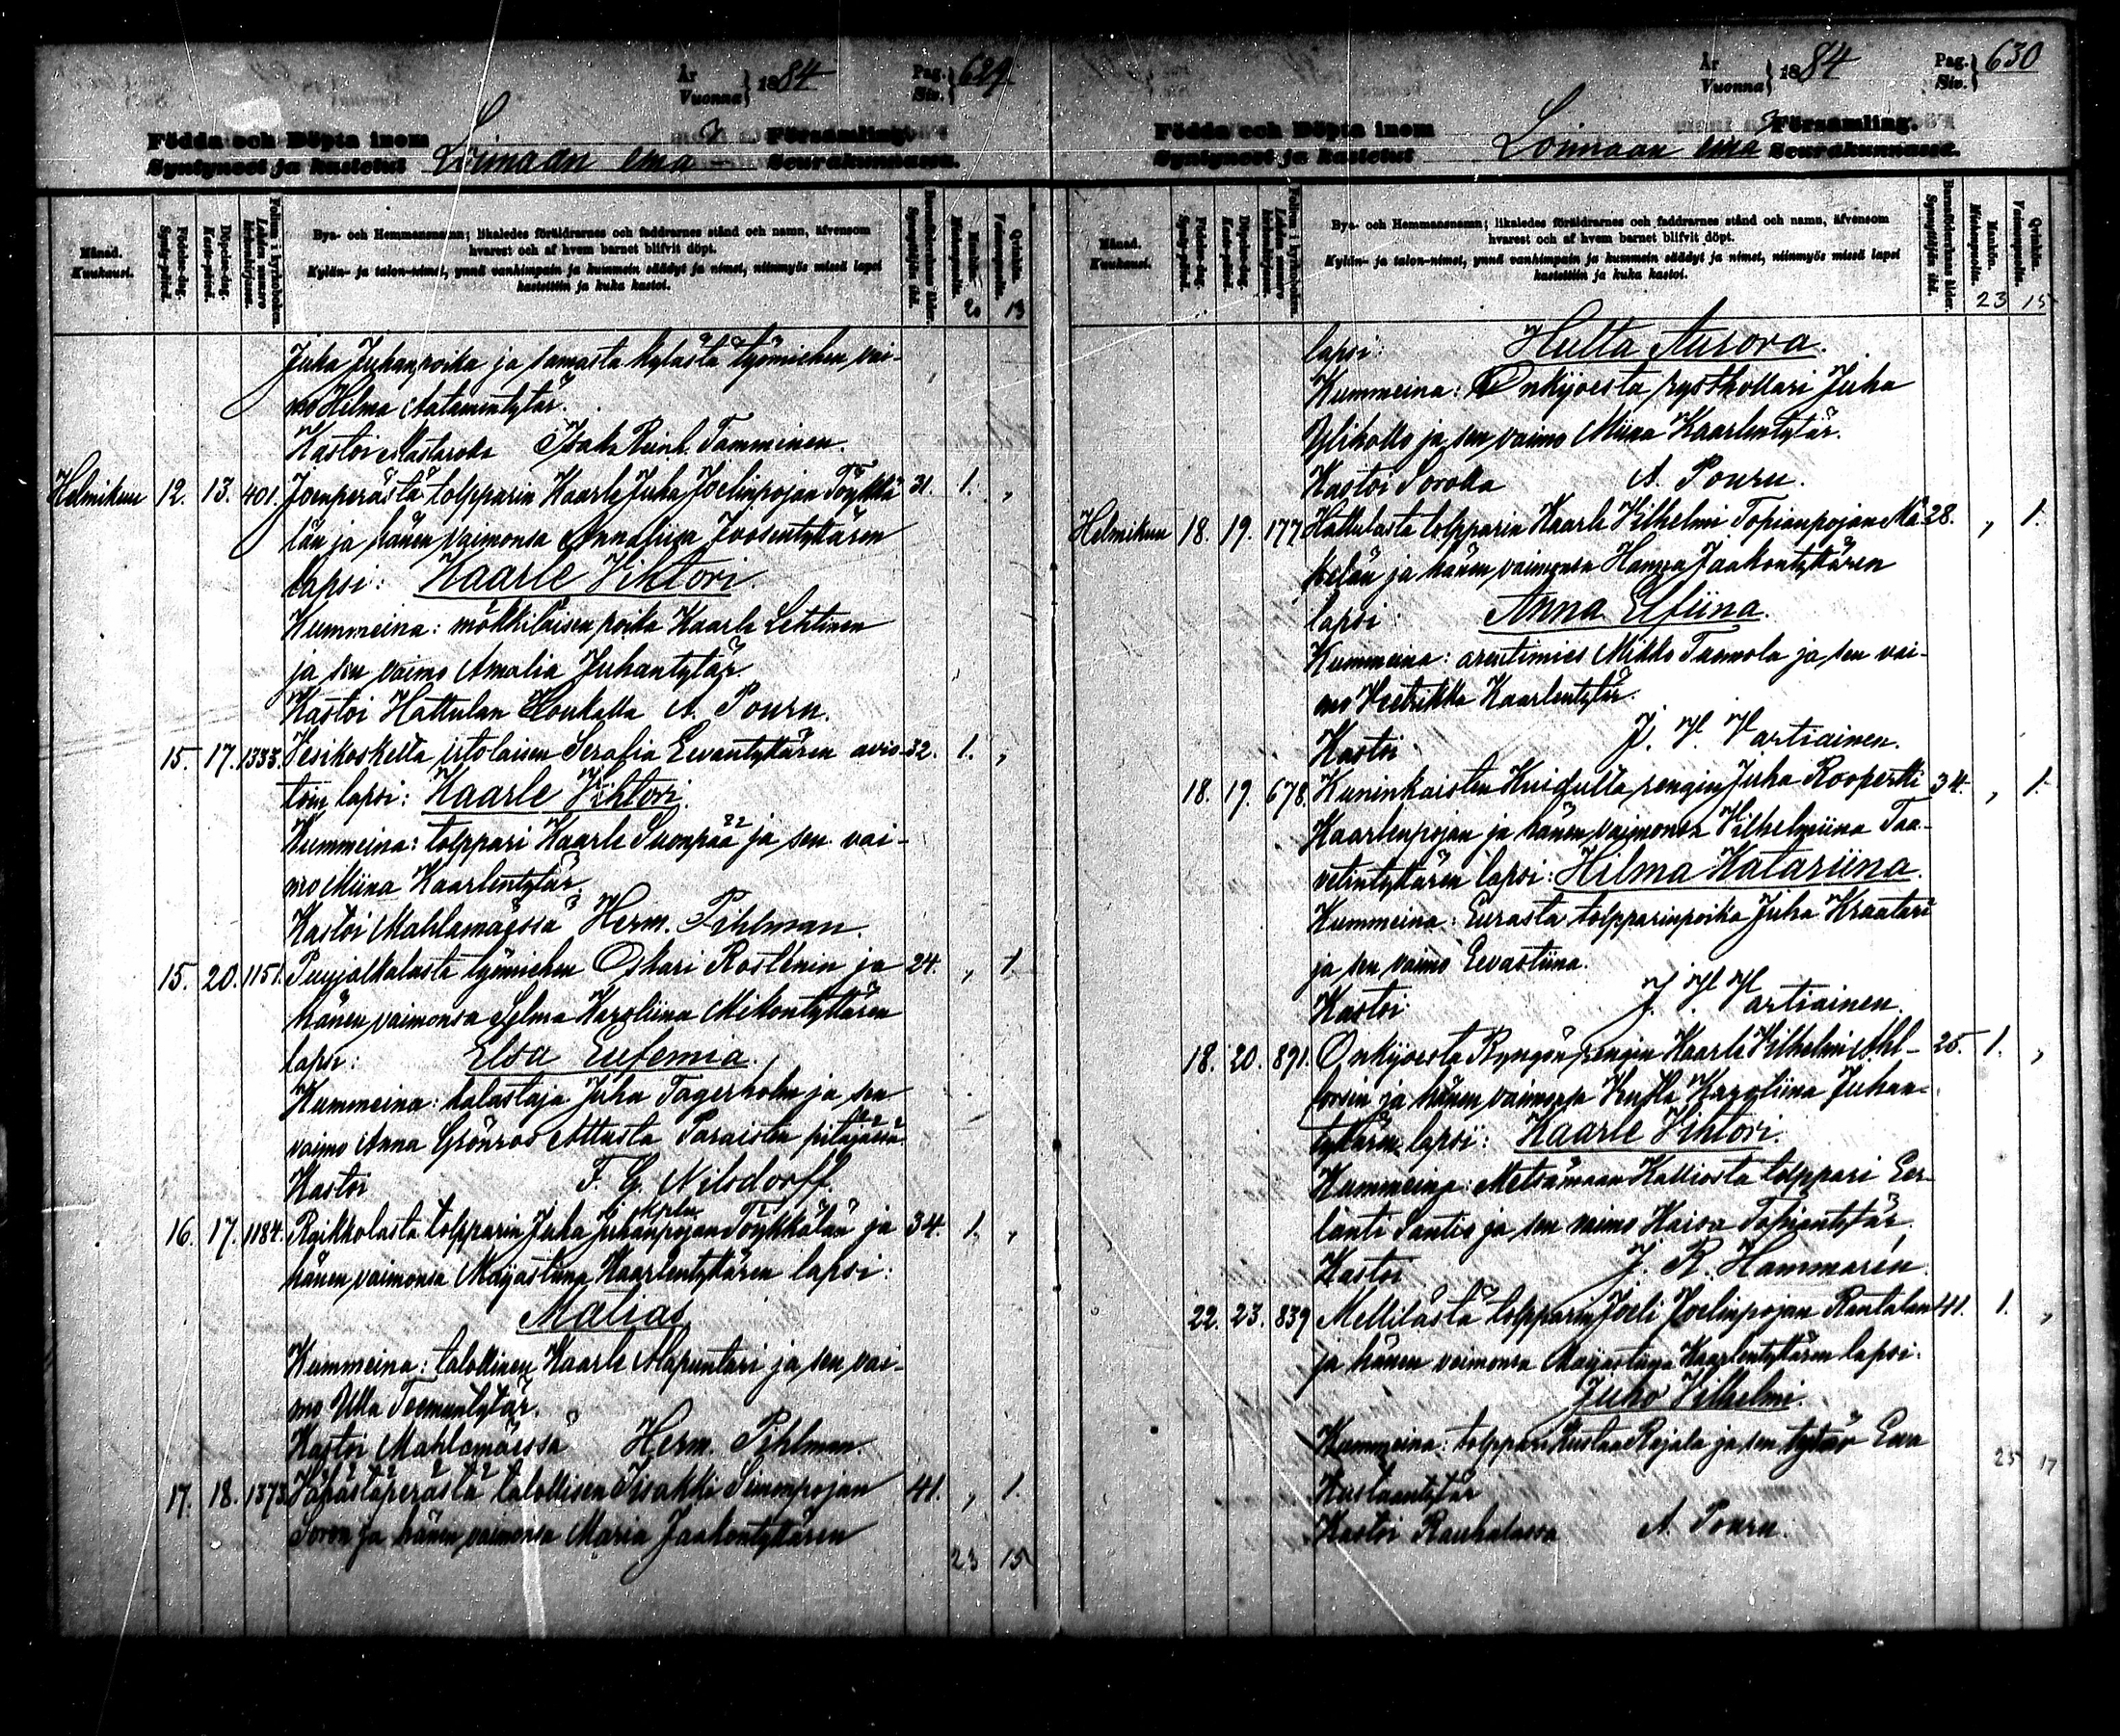 År
Vuonna } 1884
Pag.
Siv. } 629
Födda och Döpta inom
Syntyneet ja kastetut Loimaan emä Församling.
Seurakunnassa.
Månad.
Kuukausi.
Födelse-dag.
Synty-päivä.
Döpelse-dag.
Kaste-päivä.
Folium i kyrkoboken.
Lehden numero kirkonkirjassa.
Bya- och Hemmansnamn; likaledes föräldrarnes och faddrarnes stånd och namn, äfvensom
hvarest och af hvem barnet blifvit döpt.
Kylän- ja talon-nimet, ynnä vanhimpain ja kummein säädyt ja nimet, niinmyös missä lapsi
kastettiin ja kuka kastoi.
Barnaföderskans ålder.
Synnyttäjän ikä.
Mankön.
Miehenpuolia.
20
Qvinkön.
Vaimonpuolia.
13
Juha Juhanpoika ja samasta kylästä työmiehen vai-
mo Helma Aatamintytär.
Kastoi Tamminen.
Helmikuu 12. 13. 401. Joenperästä tolpparin Kaarle Juha Joelinpojan Töykkä- 31. 1. „
län ja hänen vaimonsa Annaliisa Joosentyttären
lapsi: Kaarle Vihtori.
Kummeina: mökkiläisen poika Kaarle Lehtinen
ja sen vaimo Amalia Juhantytär.
Kastoi Hattulan A. Pouru.
15. 17. 1333. Vesikoskelta irtolaisen Serafia Eevantyttären aviot- 32. 1. „
toin lapsi: Kaarle Vihtori.
Kummeina: tolppari Kaarle Suonpää ja sen vai-
mo Miina Kaarlentytär.
Kastoi Mahlamäessä Herm. Pihlman.
15. 20. 1151. Puujalkalasta työmiehen Oskari Rostenin ja 24. „ 1.
hänen vaimonsa Selma Karoliina Mikontyttären
lapsi: Elsa Eufemia.
Kummeina: kalastaja Juha Tagerholm ja sen
vaimo Anna Grönros Attusta Paraisten pitäjässä.
Kastoi F. G. Nilsdorff.
16. 17. 1184. Raikkolasta tolpparin Juha Juhanpojan Töykkälän ja 34. 1. „
hänen vaimonsa Maijastiina Kaarlentyttären lapsi:
Matias
Kummeina: talollinen Kaarle Alapuntari ja sen vai-
mo Ulla Teemuntytär.
Kastoi Mahlamäessä Herm. Pihlman.
17. 18. 1373. talollisen Iisakki Simonpojan 41. „ 1.
Soron ja hänen vaimonsa Maria Jaakontyttären
23 15
År
Vuonna } 1884
Pag.
Siv. } 630
Födda och Döpta inom
Syntyneet ja kastetut Loimaan emä Församling.
Seurakunnassa.
Månad.
Kuukausi.
Födelse-dag.
Synty-päivä.
Döpelse-dag.
Kaste-päivä.
Folium i kyrkoboken.
Lehden numero kirkonkirjassa.
Bya- och Hemmansnamn; likaledes föräldrarnes och faddrarnes stånd och namn, äfvensom
hvarest och af hvem barnet blifvit döpt.
Kylän- ja talon-nimet, ynnä vanhimpain ja kummein säädyt ja nimet, niinmyös missä lapsi
kastettiin ja kuka kastoi.
Barnaföderskans ålder.
Synnyttäjän ikä.
Mankön.
Miehenpuolia.
23
Qvinkön.
Vaimonpuolia.
15
lapsi: Hulta Aurora.
Kummeina: Onkijoesta rysthollari Juha
Ylikallo ja sen vaimo Miina Kaarlentytär.
Kastoi Sorolla A. Pouru.
Helmikuu 18. 19. 177 Hattulasta tolpparin Kaarle Vilhelmi Topianpojan Mä- 28. „ 1.
kelän ja hänen vaimonsa Hanna Jaakontyttären
lapsi: Anna Elfiina.
Kummeina: arentimies Mikko Tuomola ja sen vai-
mo Heetrikka Kaarlentytär.
Kastoi J. H. Vartiainen.
18. 19. 678. Kuninkaisten Knidulta rengin Juha Roopertti 34. „ 1.
Kaarlenpojan ja hänen vaimonsa Vilhelmiina Taa-
vetintyttären lapsi: Hilma Katariina.
Kummeina: Eurasta tolpparinpoika Juha Kraatari
ja sen vaimo Eevastiina.
Kastoi J. H. Vartiainen.
18. 20. 891. Onkijoesta Ryngön rengin Kaarle Vilhelmi Ahl- 25. 1. „
forsin ja hänen vaimonsa Karoliina Juhan-
tyttären lapsi: Kaarle Vihtori.
Kummeina: Metsämaan Kalliosta tolppari Eer-
lanti Santio ja sen vaimo Kaisa Topiantytär.
Kastoi J. R. Hammarén.
22. 23. 839 Mellilästä tolpparin Joeli Joelinpojan Rautalan 41. 1. „
ja hänen vaimonsa Maijastiina Kaarlentyttären lapsi:
Juho Vilhelmi.
Kummeina: tolppari Kustaa Rajala ja sen tytär Eeva
Kustaantytär
25 17
Kastoi Rauhalassa A. Pouru.